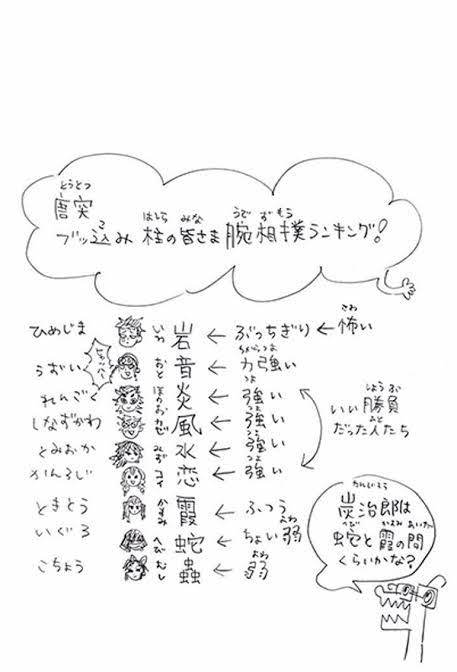 とうとつ
唐突
こ はしら みな うで ずもう
ブッ込み 柱の皆さま 腕相撲ランキング!
さわ
ひめじま いわ 岩 ← ぶっちぎり ← 怖い
ちからづよ
うずい おと 音 ← 力強い
つよ
れんごく ほのお 炎 ← 強い
つよ
しなずがわ かぜ 風 ← 強い
つよ
とみおか みず 水 ← 強い
つよ
かんろじ コイ 恋 ← 強い
しょうぶ
いい勝負
ひと
だった人たち
ときとう かすみ 霞 ← ふつう
よわ
いぐろ へび 蛇 ← ちょい弱
よわ
こちょう むし 蟲 ← 弱
たんじろう
炭治郎は
へび かすみ あいだ
蛇と霞の間
くらいかな?